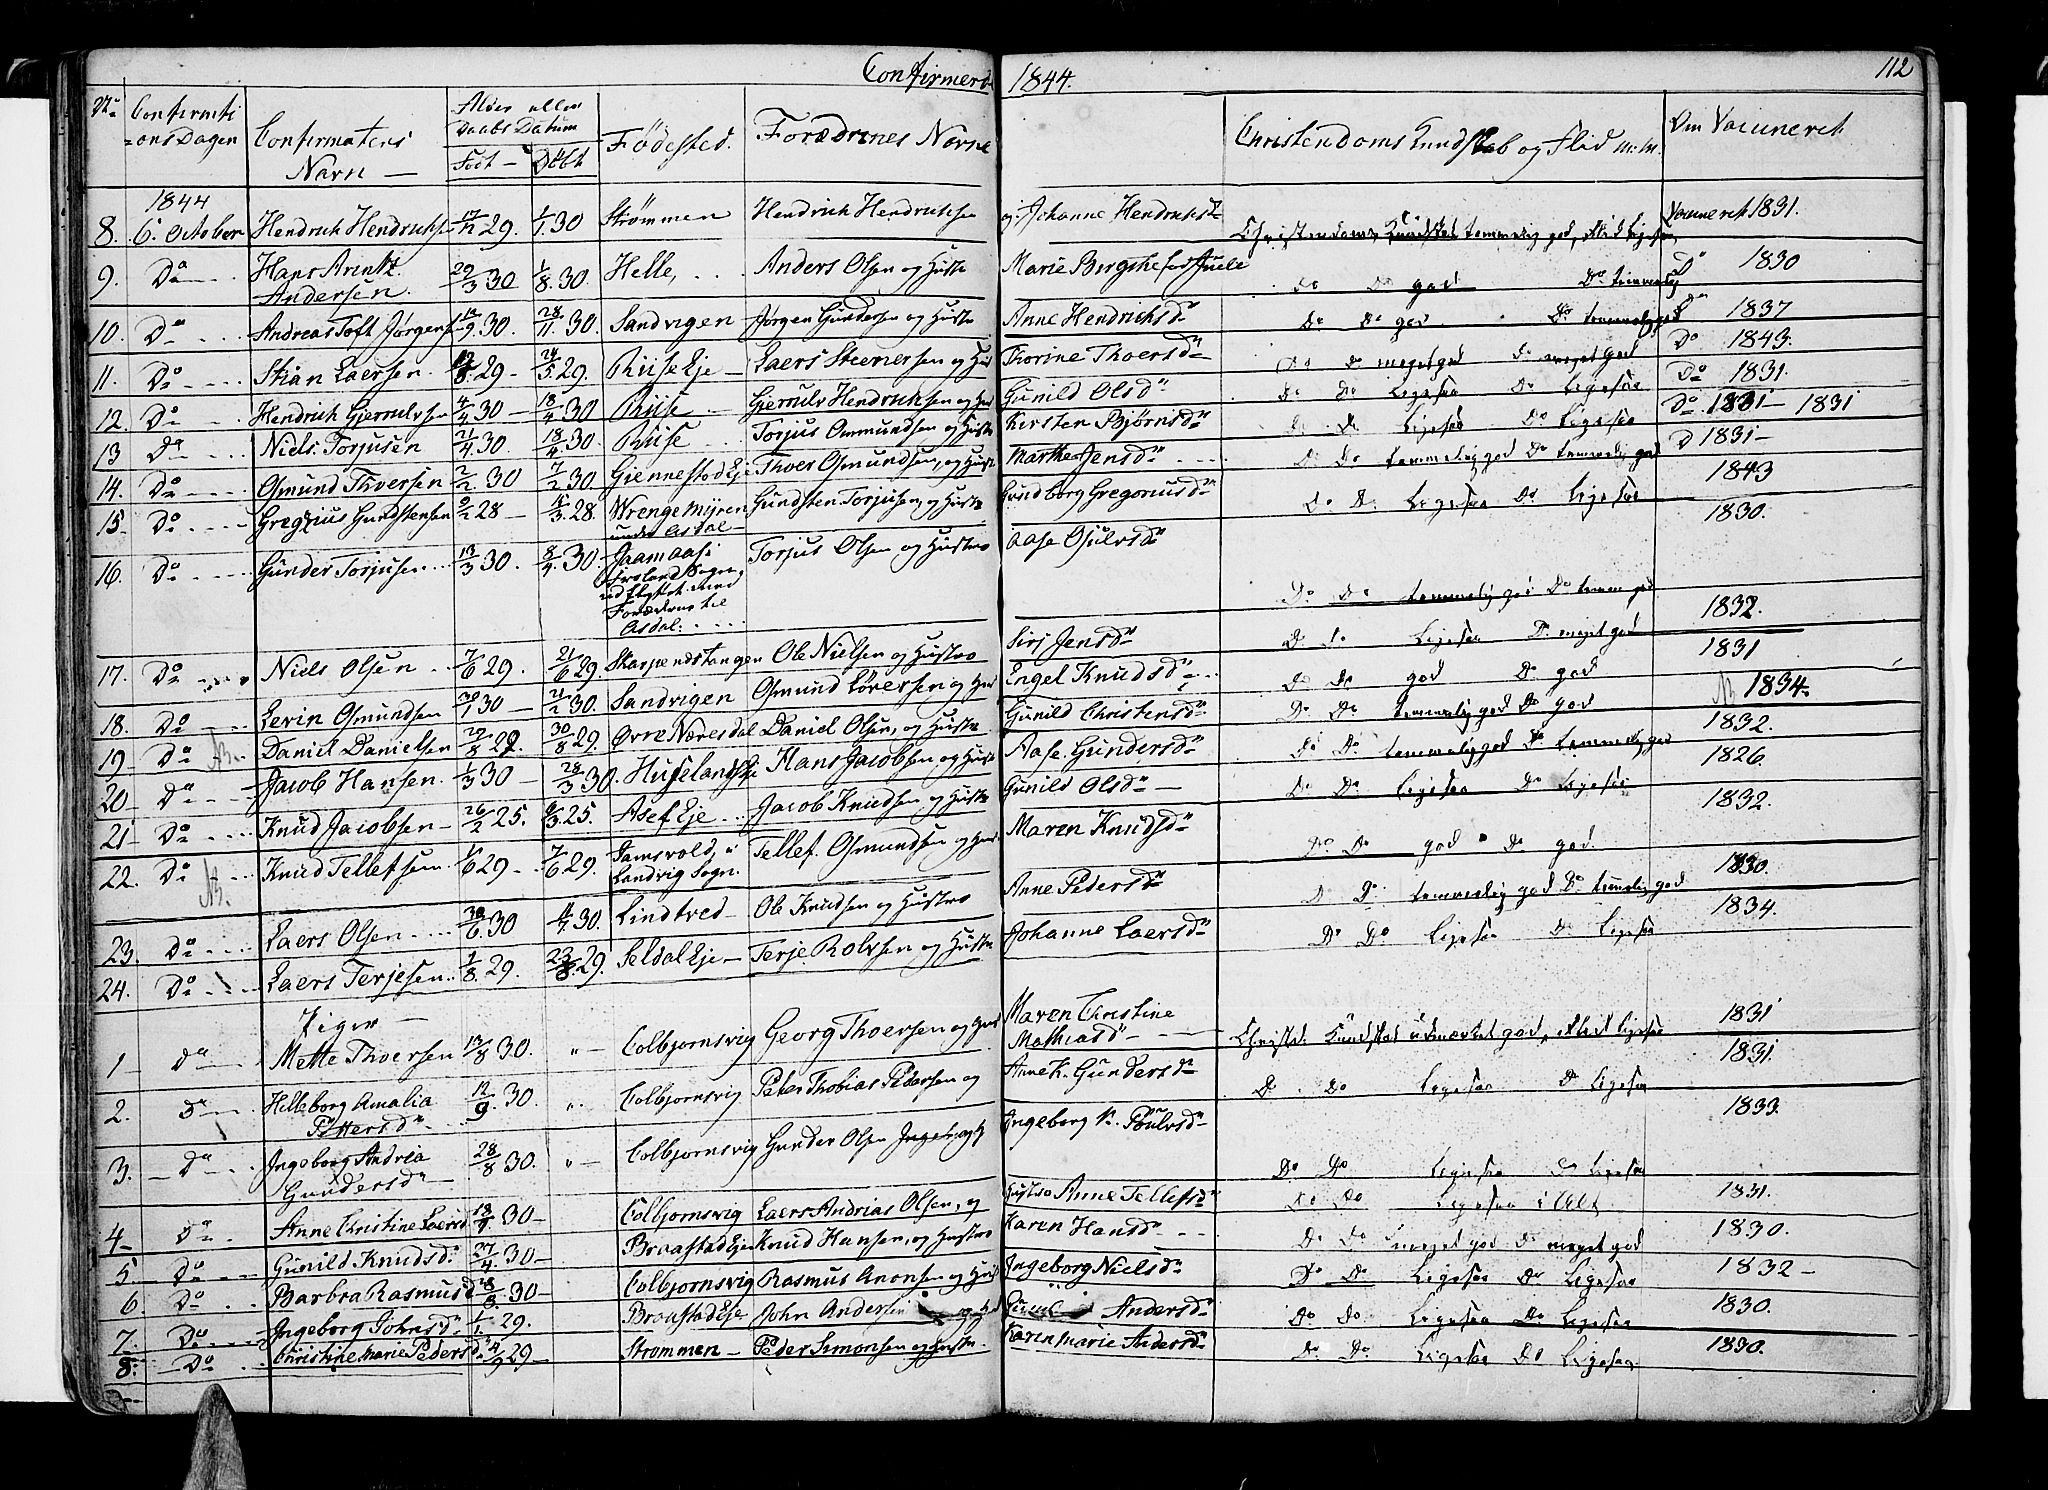 Confirmerede 1844. 112
No Confirmti Confirmatens Alder eller Fødested. Forædrenes Navne Christendoms Kundskab og Flid m.m. Om Vaccineret
onsDagen Navn Daabs Datum
Født Døbt
1844
8. 6. October Hendrich Hendrichsen 17/12 29. 1/1 30 Strømmen Hendrich Hendrichsen og Johanne Hendrichsd Christendoms Kundskab temmelig god, Flid ligesaa Vaccineret 1831.
9. Do Hans Arentz Andersen 29/3 30 1/8 30. Helle, Anders Olsen og Hustr Marie Do Do god Do temmelig Do 1830
10. Do Andreas Toft Jørgensen 9. 30. 28/11 30. Sandvigen Jørgen Gundersen og Hustr Anne Hendrichsd Do Do god Do temmelig god Do 1837
11. Do Stian Laersen 8 29 24/5 29. Riise Eje Laers Steenersen og Hus Thorine Thoersd Do Do meget god Do meget god Do 1843.
12. Do Hendrich Gjerrulvsen 4/4 30 18/4 30. Riise Gjerrulv Hendrichsen og Hus Gunild Olsd Do Do Ligesaa Do Ligesaa Do 1831.
13 Do Niels Torjusen 21/4 30. 18/4 30. Riise Torjus Ommundsen og Hustr Kirsten Bjørnsd Do Do Ligesaa Do Ligesaa Do 1831 - 1831
14. Do Osmund Thversen 2/2 30 7/2 30. Giennestad Eje Thoer Osmundsen, og Hustr Marthe Jensd Do Do temmelig god Do temmelig god D 1831
15. Do Gregorius Gundstensen 9/2 28 4/3 28. Wrengemyren under Asdal Gundsten Torjusen, og Hustr Gundborg Gregoriusd Do Do Ligesaa Do Ligesaa 1843
16. Do Gunder Torjusen 13/3 30. 8/4 30. Jaamaasi Froland Sogn, udflyttet med Forædrene til Asdal. Torjus Olsen og Hustro Aase Osulvsd Do Do temmelig god Do temm god 1830.
17. Do Niels Olsen 7/6 29. 21/6 29. Skarpenstangen Ole Nielsen og Hustro Siri Jensd Do Do Ligesaa Do meget god 1832.
18. Do Levin Osmundsen 30/1 30 21/2 30. Sandvigen Osmund Sørensen og Hus Engel Knudsd Do Do god Do god 1831
19 Do Daniel Danielsen 29/8 29. 30/8 29. Øvre Næresdal Daniel Olsen, og Hustr Gunild Christensd Do Do temmelig god Do god NB 1834.
20 Do Jacob Hansen 1/3 30 28/3 30. Huseland Eje Hans Jacobsen og Hust Aase Gundersd Do Do temmelig god Do temmelig god 1832.
21 Do Knud Jacobsen 26/2 25. 6/3 25. Asef Eje Jacob Knudsen, og Hustr Gunild Olsd Do Do Ligesaa Do Ligesaa 1826.
22. Do Knud Tellefsen 1/6 29 7/6 29. Jamsvold, i Landvig Sogn. Tellef Osmundsen og Hus Maren Knudsd Do Do god Do god 1832.
23. Do Laers Olsen 30/6 30 11/7 30. Lindtved Ole Knudsen og Hustro Anne Pedersd Do Do temmelig god Do temmelig god 1830.
24. Do Laers Terjesen 1/8 29. 23/8 29. Seldal Eje Terje Rolvsen og Hustr Johanne Laersd Do Do Ligesaa Do Ligesaa 1834.
Piger
1 Do Mette Thoersen 13/8 30. " Colbjornsvig Georg Thoersen og Hus Maren Christine Mathiasd Christd Kundskab udmærket god, Flid ligesaa 1831
2. Do Helleborg Amalia Pettersd 12/9 30. " Colbjornsvig Peter Thobias Pedersen og Anne K. Gundersd Do Do Ligesaa Do Ligesaa 1831.
3. Do Ingeborg Andria Gundersd 28/8 30. " Colbjornsvig Gunder Olsen Ingeborg K. Poulvsd Do Do Ligesaa Do Ligesaa 1833.
4 Do Anne Christine Laersd 18/ 30 Colbjornsvig Laers Andrias Olsen, og Hustro Anne Tellefsd Do Do Ligesaa i Alt 1831.
5 Do Gunild Knudsd 27/4 30 Braastad Eje Knud Hansen, og Hustro Karen Hansd Do Do meget god Do meget god 1830.
6. Do Barbra Rasmusd 28/8 30 Colbjornsvig Rasmus Anonsen og Hus Ingeborg Nielsd Do Do Ligesaa Do Ligesaa 1832
7. Do Ingeborg Johnsd 1/1 29. Braastad Eje John Andersen Andersd Do Do Ligesaa Do Ligesaa 1830.
8. Do Christine Marie Pedersd 4/9 29 Strommen Peder Simonsen og Hustr Karen Marie Andersd Do Do Ligesaa Do Ligesaa 1830.